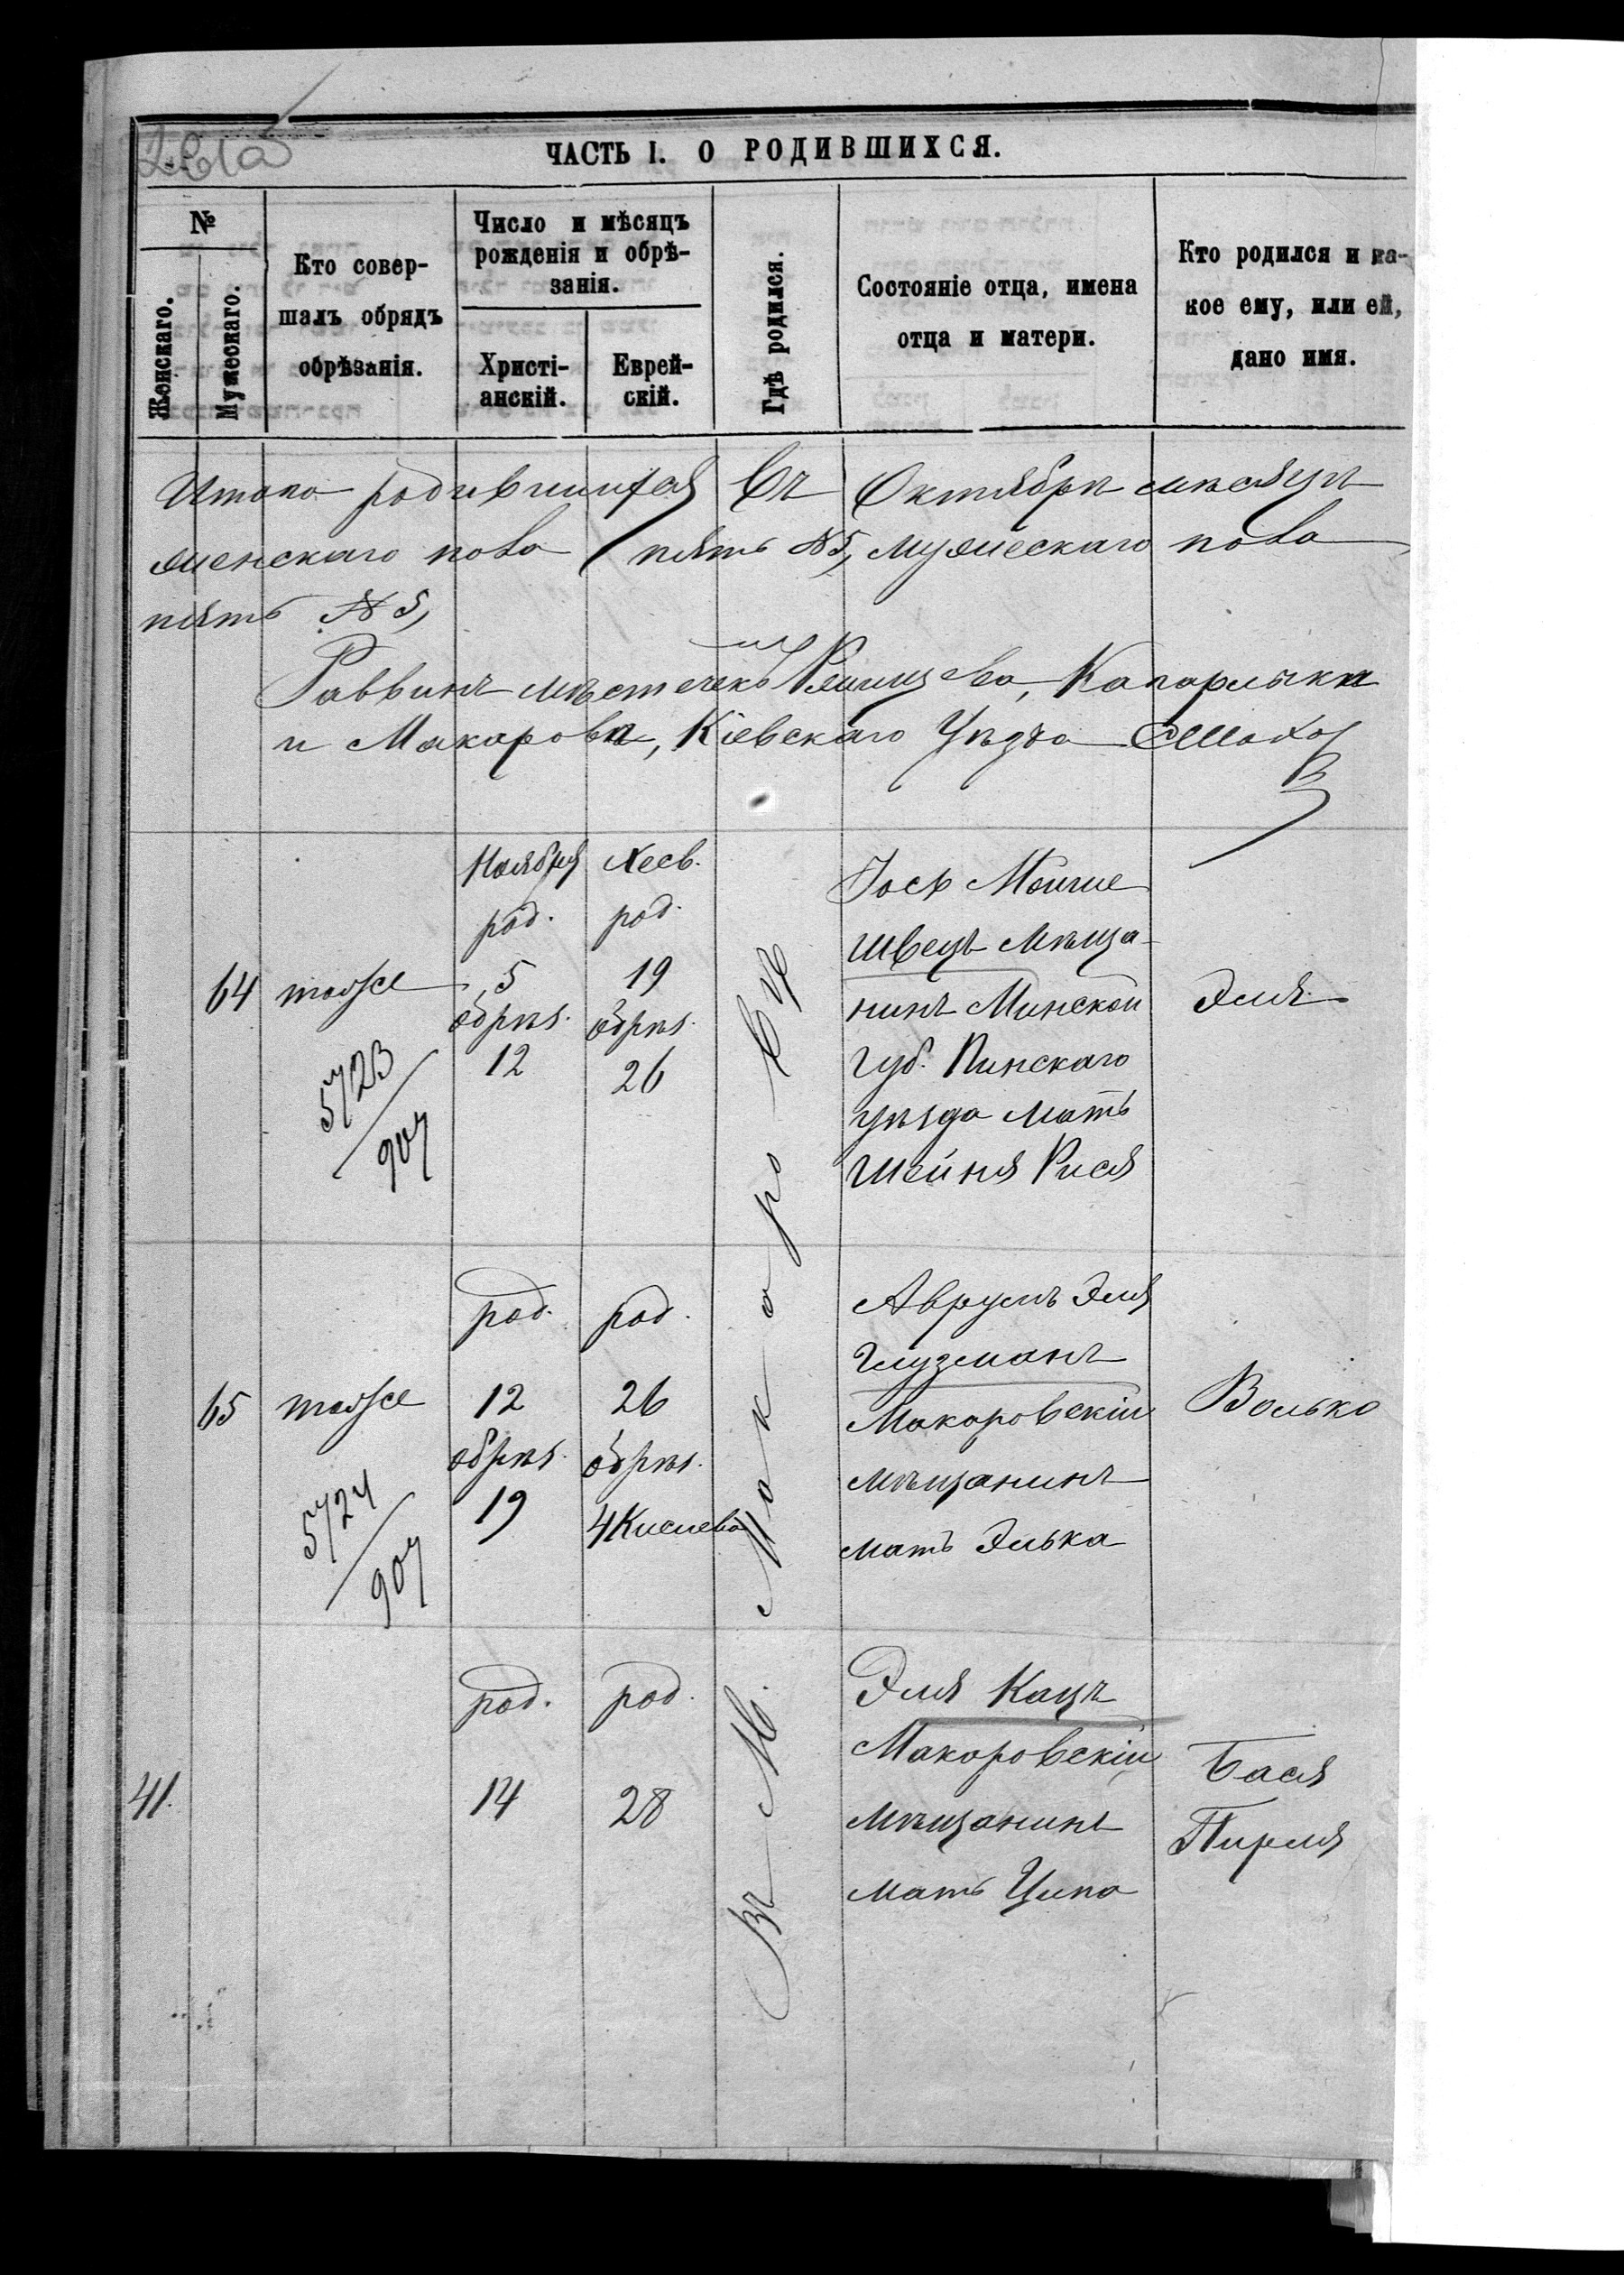 ЧАСТЬ I. О РОДИВШИХСЯ.
№
Женскаго.
Мужескаго.
Кто совер-
шалъ обрядъ
обрѣзанія.
Число и мѣсяцъ
рожденія и обрѣ-
занія.
Христі-
анскій.
Еврей-
скій.
Гдѣ родился.
Состояніе отца, имена
отца и матери.
Кто родился и ка-
кое ему, или ей,
дано имя.
Итого родившихся въ Октябрѣ мѣсяцѣ
женскаго пола пять № 5, мужескаго пола
пять № 5,
Раввинъ мѣстечекъ Кагарлыка
и Макарова, Кіевскаго Уѣзда
Въ М. Макаровѣ
64
тоже
5723/907
Ноября
род.
5
обрѣз.
12
Хесв.
род.
19
обрѣз.
26
Іосф Мойше
Швецъ Мѣща-
нинъ Минской
Губ. Пинскаго
уѣзда Мать
Шейня Рися
Эля
65
тоже
5724/907
род.
12
обрѣз.
19
род.
26
обрѣз.
4 Кислева
Аврумъ Эля
Глузманъ
Макаровскій
мѣщанинъ
мать Элька
Волько
41.
род.
14
род.
28
Эля Кацъ
Макаровскій
мѣщанинъ
мать Ципа
Бася
Пирля